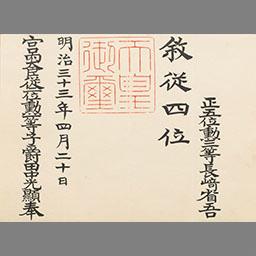 正五位勲三等長﨑省吾
敘從四位
天皇御璽
明治三十三年四月二十日
宮內大臣從二位勲一等子爵田中光顯奉